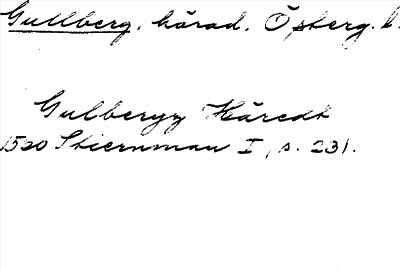 Gullberg, härad. Östberg. l.
Gulbergz Häredt
1520 Stiernman I, s. 231.